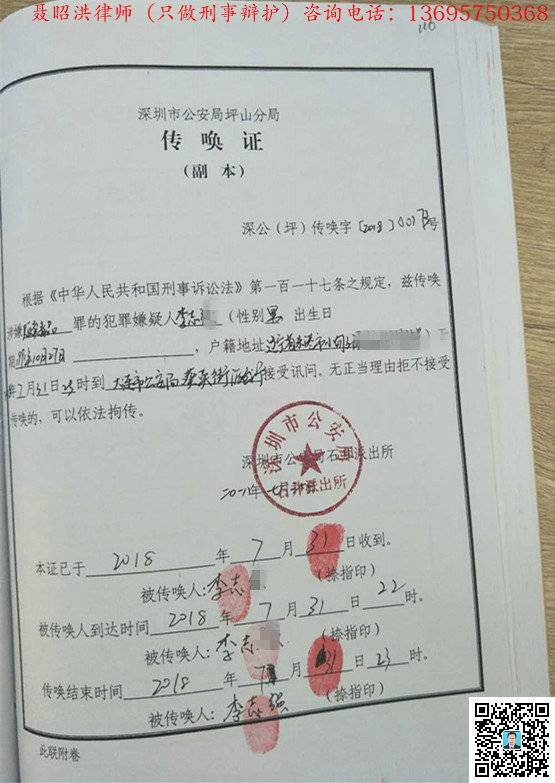 聂昭洪律师（只做刑事辩护）咨询电话：13695750368
深圳市公安局坪山分局
传唤证
（副本）
深公（坪）传唤字〔2018〕号
根据《中华人民共和国刑事诉讼法》第一百一十七条之规定，兹传唤
涉嫌 罪的犯罪嫌疑人李志（性别男 出生日
期 10月27日 ，户籍地址
7月31日 时到大连市公安局 街派出所接受讯问。无正当理由拒不接受
传唤的，可以依法拘传。
深圳市公安局石井派出所
石井派出所
本证已于 2018 年 7 月 31 日收到。
被传唤人：李志 （捺指印）
被传唤人到达时间 2018 年 7 月 31 日 22 时。
被传唤人：李志 （捺指印）
传唤结束时间 2018 年 7 月 31 日 23 时。
被传唤人：李志强 （捺指印）
此联附卷